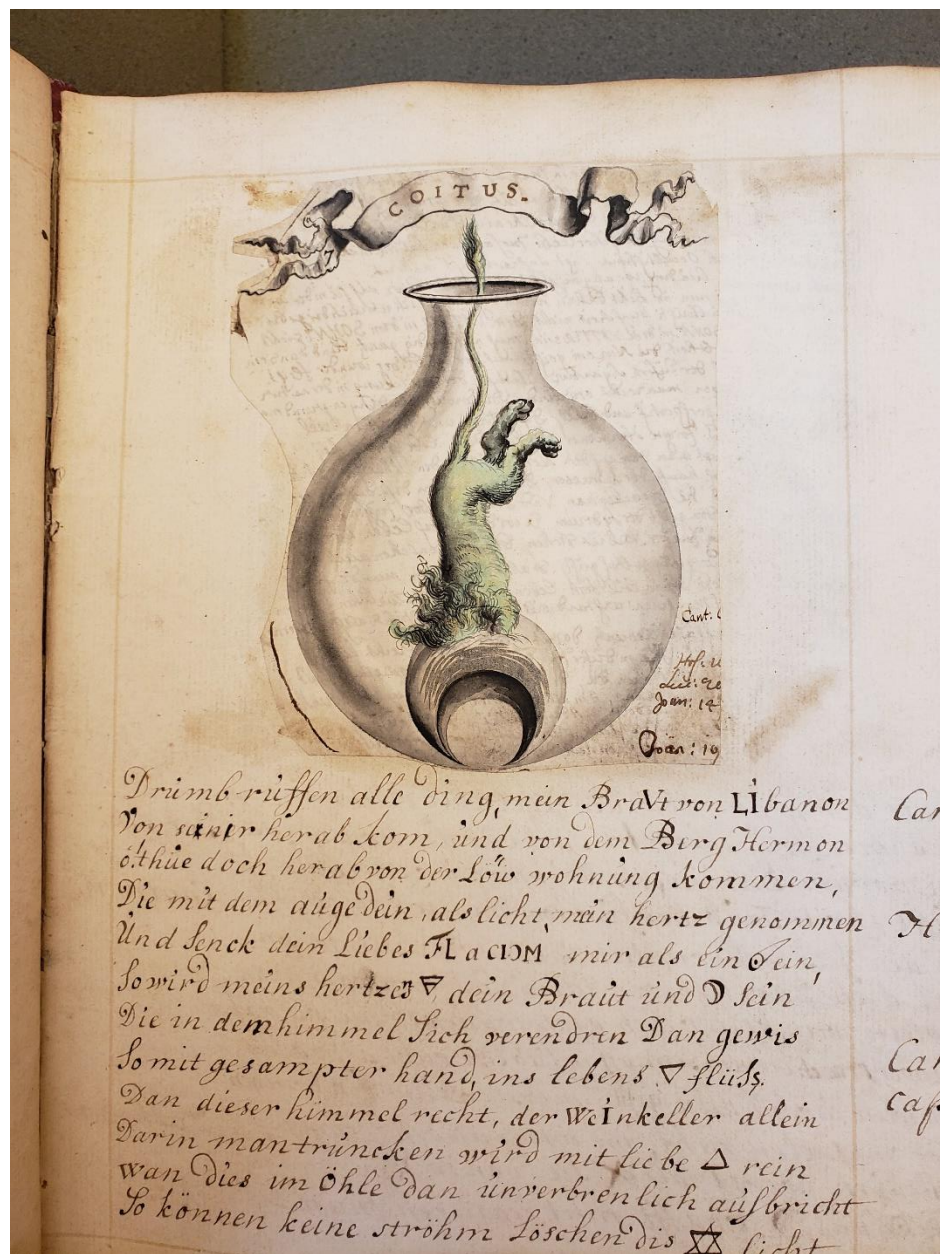 COITUS.
7
Cant:
Luc:
Joan: 14
Joan: 19
Drumb ruffen alle ding, mein BraVt von LIbanon
Von herab kom, und von dem Berg Hermon
ô thüe doch herab von der Löw wohnung kommen,
Die mit dem auge dein, als licht, mein hertz genommen
Und senck dein Liebes mir als ein
So wird meins hertzes 🜄 dein Braut und ☽ sein
Die in dem himmel sich verendren Dan gewis
So mit gesampter hand, ins lebens 🜄 flüss.
Dan dieser himmel recht, der WeInkeller allein
Darin man truncken wird mit liebe 🜂 rein
wan dies im Öhle dan unverbrenlich aufbricht
So können keine ströhm löschen dis ✡ licht
Can
H
Can
cap